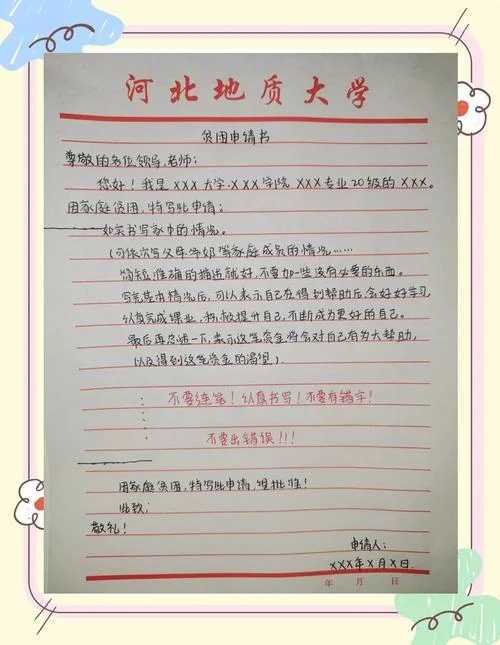 河北地质大学
贫困申请书
尊敬的各位领导,老师:
您好!我是XXX大学,XXX学院XXX专业20级的XXX。
因家庭贫困,特写此申请。
如实书写家中的情况。
(可依次写父母
等家庭成员的情况……
简短准确的描出就好,不要加一些没有必要的东西。
写完基本情况后,可以表示自己在得到帮助后,会好好学习,
认真完成课业,积极提升自己,不断成为更好的自己。
最后再总述一下,表示这笔资金将会对自己有为大帮助,
以及得到这笔资金的渴望).
不要连笔!认真书写!不要有错字!
不要出错误!!!
因家庭贫困,特写此申请,望批准!
此致:
敬礼!
申请人:
XXX年X月X日.
年 月 日